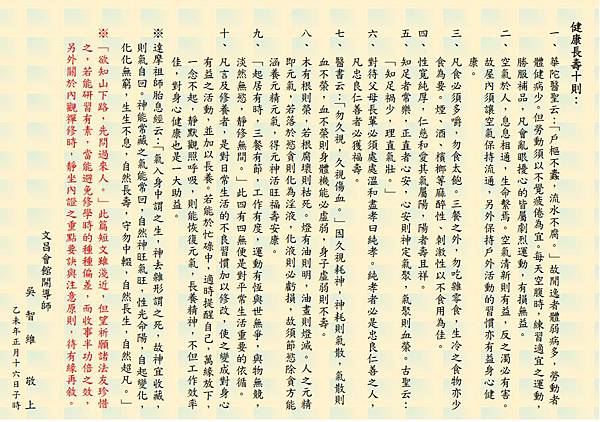 健康長壽十則：
一、華陀醫聖云：「戶樞不蠹，流水不腐。」故閒逸者體弱病多，勞動者
體健病少。但勞動須以不覺疲倦為宜。每天空腹時，練習適宜之運動，
勝服補品，凡會亂眼擾心的皆屬劇烈運動，有損無益。
二、空氣於人，息息相通，生命繫焉。空氣清新則有益，反之濁必有害。
故屋內須讓空氣保持流通，另外保持戶外活動的習慣亦有益身心健
康。
三、凡食必須多嚼，勿食太飽。三餐之外，勿吃雜零食，生冷之食物亦少
食為要。煙、酒、檳榔等麻醉性、刺激性以不食用為佳。
四、性寬純厚，仁慈和愛其氣屬陽，陽者壽且祥。
五、知足者常樂，正直者心安，心安則神定氣聚，氣聚則血榮。古聖云：
「知足禍少，理直氣壯。」
六、對待父母長輩必須處處溫和盡孝曰純孝。純孝者必是忠良仁善之人，
凡忠良仁善者必獲福壽。
七、醫書云：「勿久視，久視傷血。」因久視耗神，神耗則氣散，氣散則
血不榮，血不榮則身體機能必虛弱，身子虛弱則不壽。
八、木有根則榮，若根腐壞則枯死。燈有油則明，油盡則燈滅。人之元精
即元氣，若落於慾貪則化為淫液，化液則必虧損，故須節慾除貪方能
涵養元精元氣，得元神活旺福壽安康。
九、「起居有時，三餐有節，工作有度，運動有恆與世無爭，與物無競，
淡然無慾，靜修無間。」此四有四無便是對平常生活重要的依循。
十、凡言及修養者，是對日常生活的不良習慣加以修改，使之變成對身心
有益之活動，並加以長養。若能於忙碌中，適時提醒自己，萬緣放下，
一念不起，靜默觀照呼吸，則能恢復元氣，長養精神，不但工作效率
佳，對身心健康也是一大助益。
※達摩祖師胎息經云：「氣入身中謂之生，神去離形謂之死，故神宜收藏，
則氣自回，神能常藏之氣能常回，自然神旺氣旺，性光命陽，自起變化，
化化無窮，生生不息，自然長壽，守勿中輟，自然長生，自然超凡。」
※「欲知山下路，先問過來人。」此篇短文雖淺近，但望祈願諸法友珍惜
之，若能研習有素，當能避免修學時的種種偏差，而收事半功倍之效，
另外關於內觀禪修時，靜坐內證之重點要訣與注意原則，待有緣再敘。
文昌會館開導師
吳智維 敬上
乙未年正月十六日子時